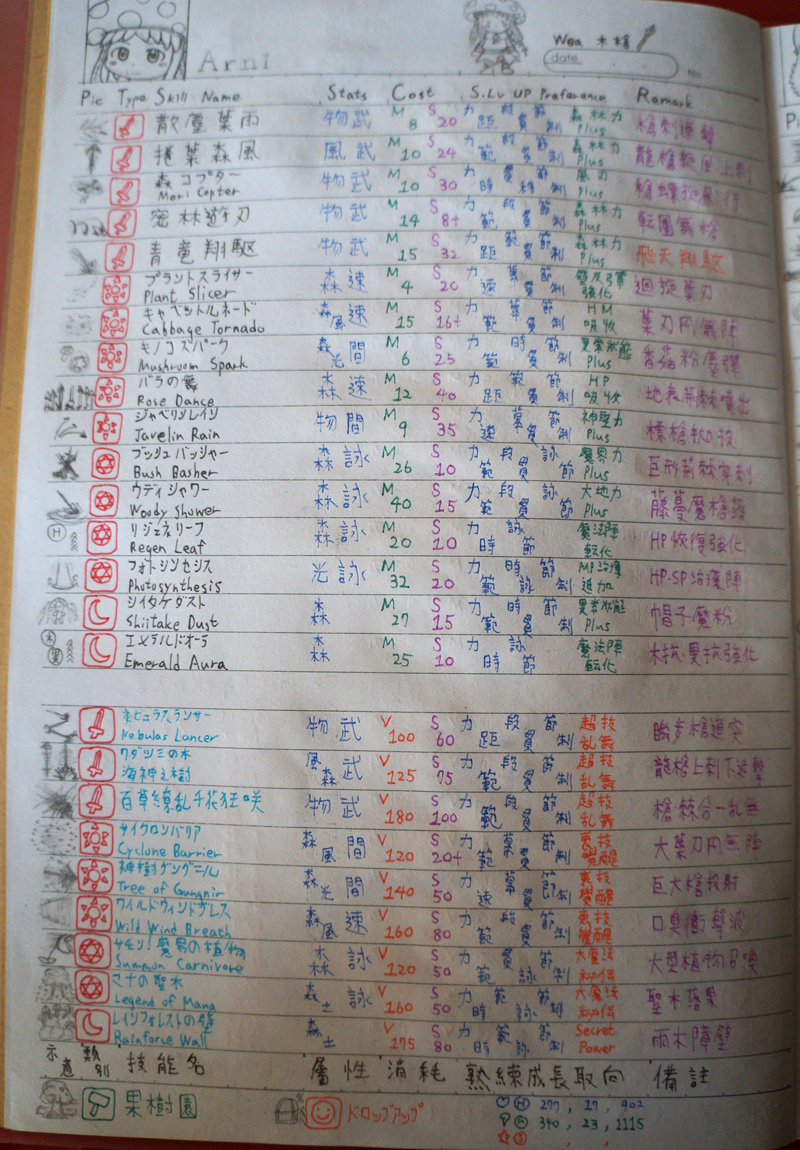 Arni Wea 木槍
date
No
Pic Type Skill Name Stats Cost S.Lv UP Preference Remark
散塵葉雨 物武 M 8 S 20 力段節 距貫制 森林力 Plus 槍刺連擊
捲葉森風 風武 M 10 S 24 力段節 範貫制 森林力 Plus 龍槍旋風上刺
森コプター
Mori Copter 物武 M 10 S 30 力貫節 時移制 風力 Plus
密林遊刃 物武 M 14 S 8+ 力段節 範貫制 森林力 Plus 転圏舞槍
青竜翔駆 物武 M 15 S 32 力範節 距貫制 森林力 Plus 飛天翔駆
プラントスライサー
Plant Slicer 森速 M 4 S 20 力葉節 速貫制 強化 迴旋葉刃
キャベットルネード
Cabbage Tornado 森風速 M 15 S 16+ 力葉節 範貫制 HM 吸收 葉刃円舞陣
キノコスパーク
Mushroom Spark 森光間 M 6 S 25 力時節 範貫制 異常狀態 Plus 香菇粉塵彈
バラの舞
Rose Dance 森速 M 12 S 40 力範節 距貫制 HP 吸收 地表荊棘噴出
ジャベリンレイン
Javelin Rain 物間 M 9 S 35 力葉節 速貫制 神聖力 Plus 標槍軟投
ブッシュバッシャー
Bush Basher 森詠 M 26 S 10 力段詠 範貫節 魔界力 Plus 巨形荊棘穿刺
ウディシャワー
Woody Shower 森詠 M 40 S 15 力段詠 範貫節 大地力 Plus 藤蔓魔槍落
リジェネリーフ
Regen Leaf 森詠 M 20 S 10 力詠 時節 魔法陣 転化 HP恢復強化
フォトシンセシス
Photosynthesis 光詠 M 32 S 20 力時節 範詠制 MP治癒 追加 HP·SP治癒陣
シイタケダスト
Shiitake Dust 森 M 27 S 15 力時節 範貫制 異常狀態 Plus 帽子魔粉
エメラルドオーラ
Emerald Aura 森 M 25 S 10 力詠 時節 魔法陣 転化 木抗·異抗強化
ネビュラスランサー
Nebulas Lancer 物武 V 100 S 60 力段節 距貫制 超技 乱舞 瞬步槍連突
ワダツミの木
海神之樹 風森武 V 125 S 75 力段節 範貫制 超技 乱舞 龍槍上刺下追擊
百草繚乱千花狂咲 物武 V 180 S 100 力段節 範貫制 超技 乱舞 槍棘合一乱舞
サイクロンバリア
Cyclone Barrier 森風間 V 120 S 20+ 力葉節 範貫制 奥技 覺醒 大葉刃円舞陣
神樹グングニル
Tree of Gungnir 森光間 V 140 S 50 力葉節 速貫制 奥技 覺醒 巨大槍投射
ワイルドウィンドブレス
Wild Wind Breath 森風速 V 160 S 80 力段節 範貫制 奥技 覺醒 口臭衝擊波
サモン!魔界の植物
Summon Carnivore 森詠 V 120 S 50 力貫節 範詠制 大魔法 秘伝 大型植物召喚
マナの聖木
Legend of Mana 森土詠 V 160 S 50 力範節 時詠制 大魔法 秘伝 聖木落果
レインフォレストの壁
Rainforce Wall 森土 V 175 S 80 力範節 時詠制 Secret Power 雨木障壁
示意 類別 技能名 屬性 消耗 熟練成長取向 備註
果樹園 ドロップアップ
H 277, 17, 902
M 340, 23, 1115
S , ,